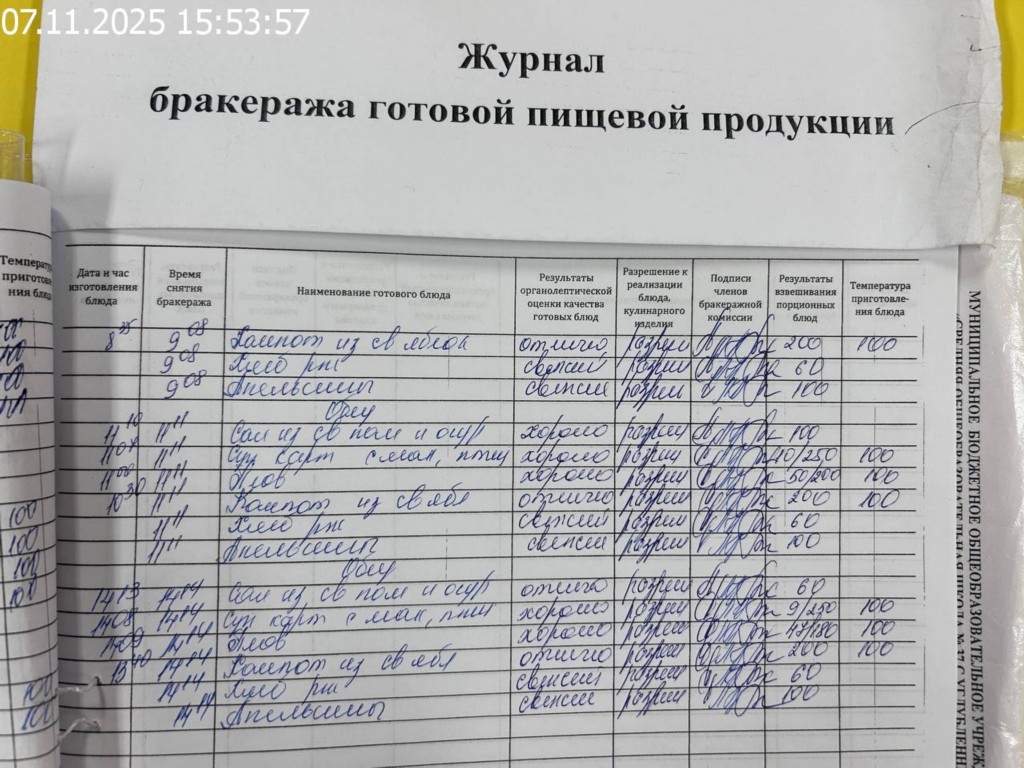 07.11.2025 15:53:57
Журнал
бракеража готовой пищевой продукции
Температу
приготов
ния блюд
Дата и час
изготовления
блюда
Время
снятия
бракеража
Наименование готового блюда
Результаты
органолептической
оценки качества
готовых блюд
Разрешение к
реализации
блюда,
кулинарного
изделия
Подписи
членов
бракеражной
комиссии
Результаты
взвешивания
порционных
блюд
Температура
приготовле-
ния блюда
8 35 9 08 Компот из св яблок отлично разреш 200 100
9 08 Хлеб рж свежий разреш 60
9 08 Апельсины свежие разреш 100
Обед
11 10 11 11 Сал из св пом и огур хорошо разреш 100
11 07 11 11 Суп карт с мак, птиц хорошо разреш 10/250 100
11 00 11 11 Плов хорошо разреш 50/200 100
10 30 11 11 Компот из св ябл отлично разреш 200 100
11 11 Хлеб рж свежий разреш 60
11 11 Апельсины свежие разреш 100
Обед
14 13 14 14 Сал из св пом и огур отлично разреш 60
14 08 14 14 Суп карт с мак, птиц хорошо разреш 9/250 100
14 09 14 14 Плов хорошо разреш 47/180 100
13 40 14 14 Компот из св ябл отлично разреш 200 100
14 14 Хлеб рж свежий разреш 60
14 14 Апельсины свежие разреш 100
100
100
100
100
100
100
МУНИЦИПАЛЬНОЕ БЮДЖЕТНОЕ ОБЩЕОБРАЗОВАТЕЛЬНОЕ УЧРЕЖ
«СРЕДНЯЯ ОБЩЕОБРАЗОВАТЕЛЬНАЯ ШКОЛА №4 С УГЛУБЛЕНН